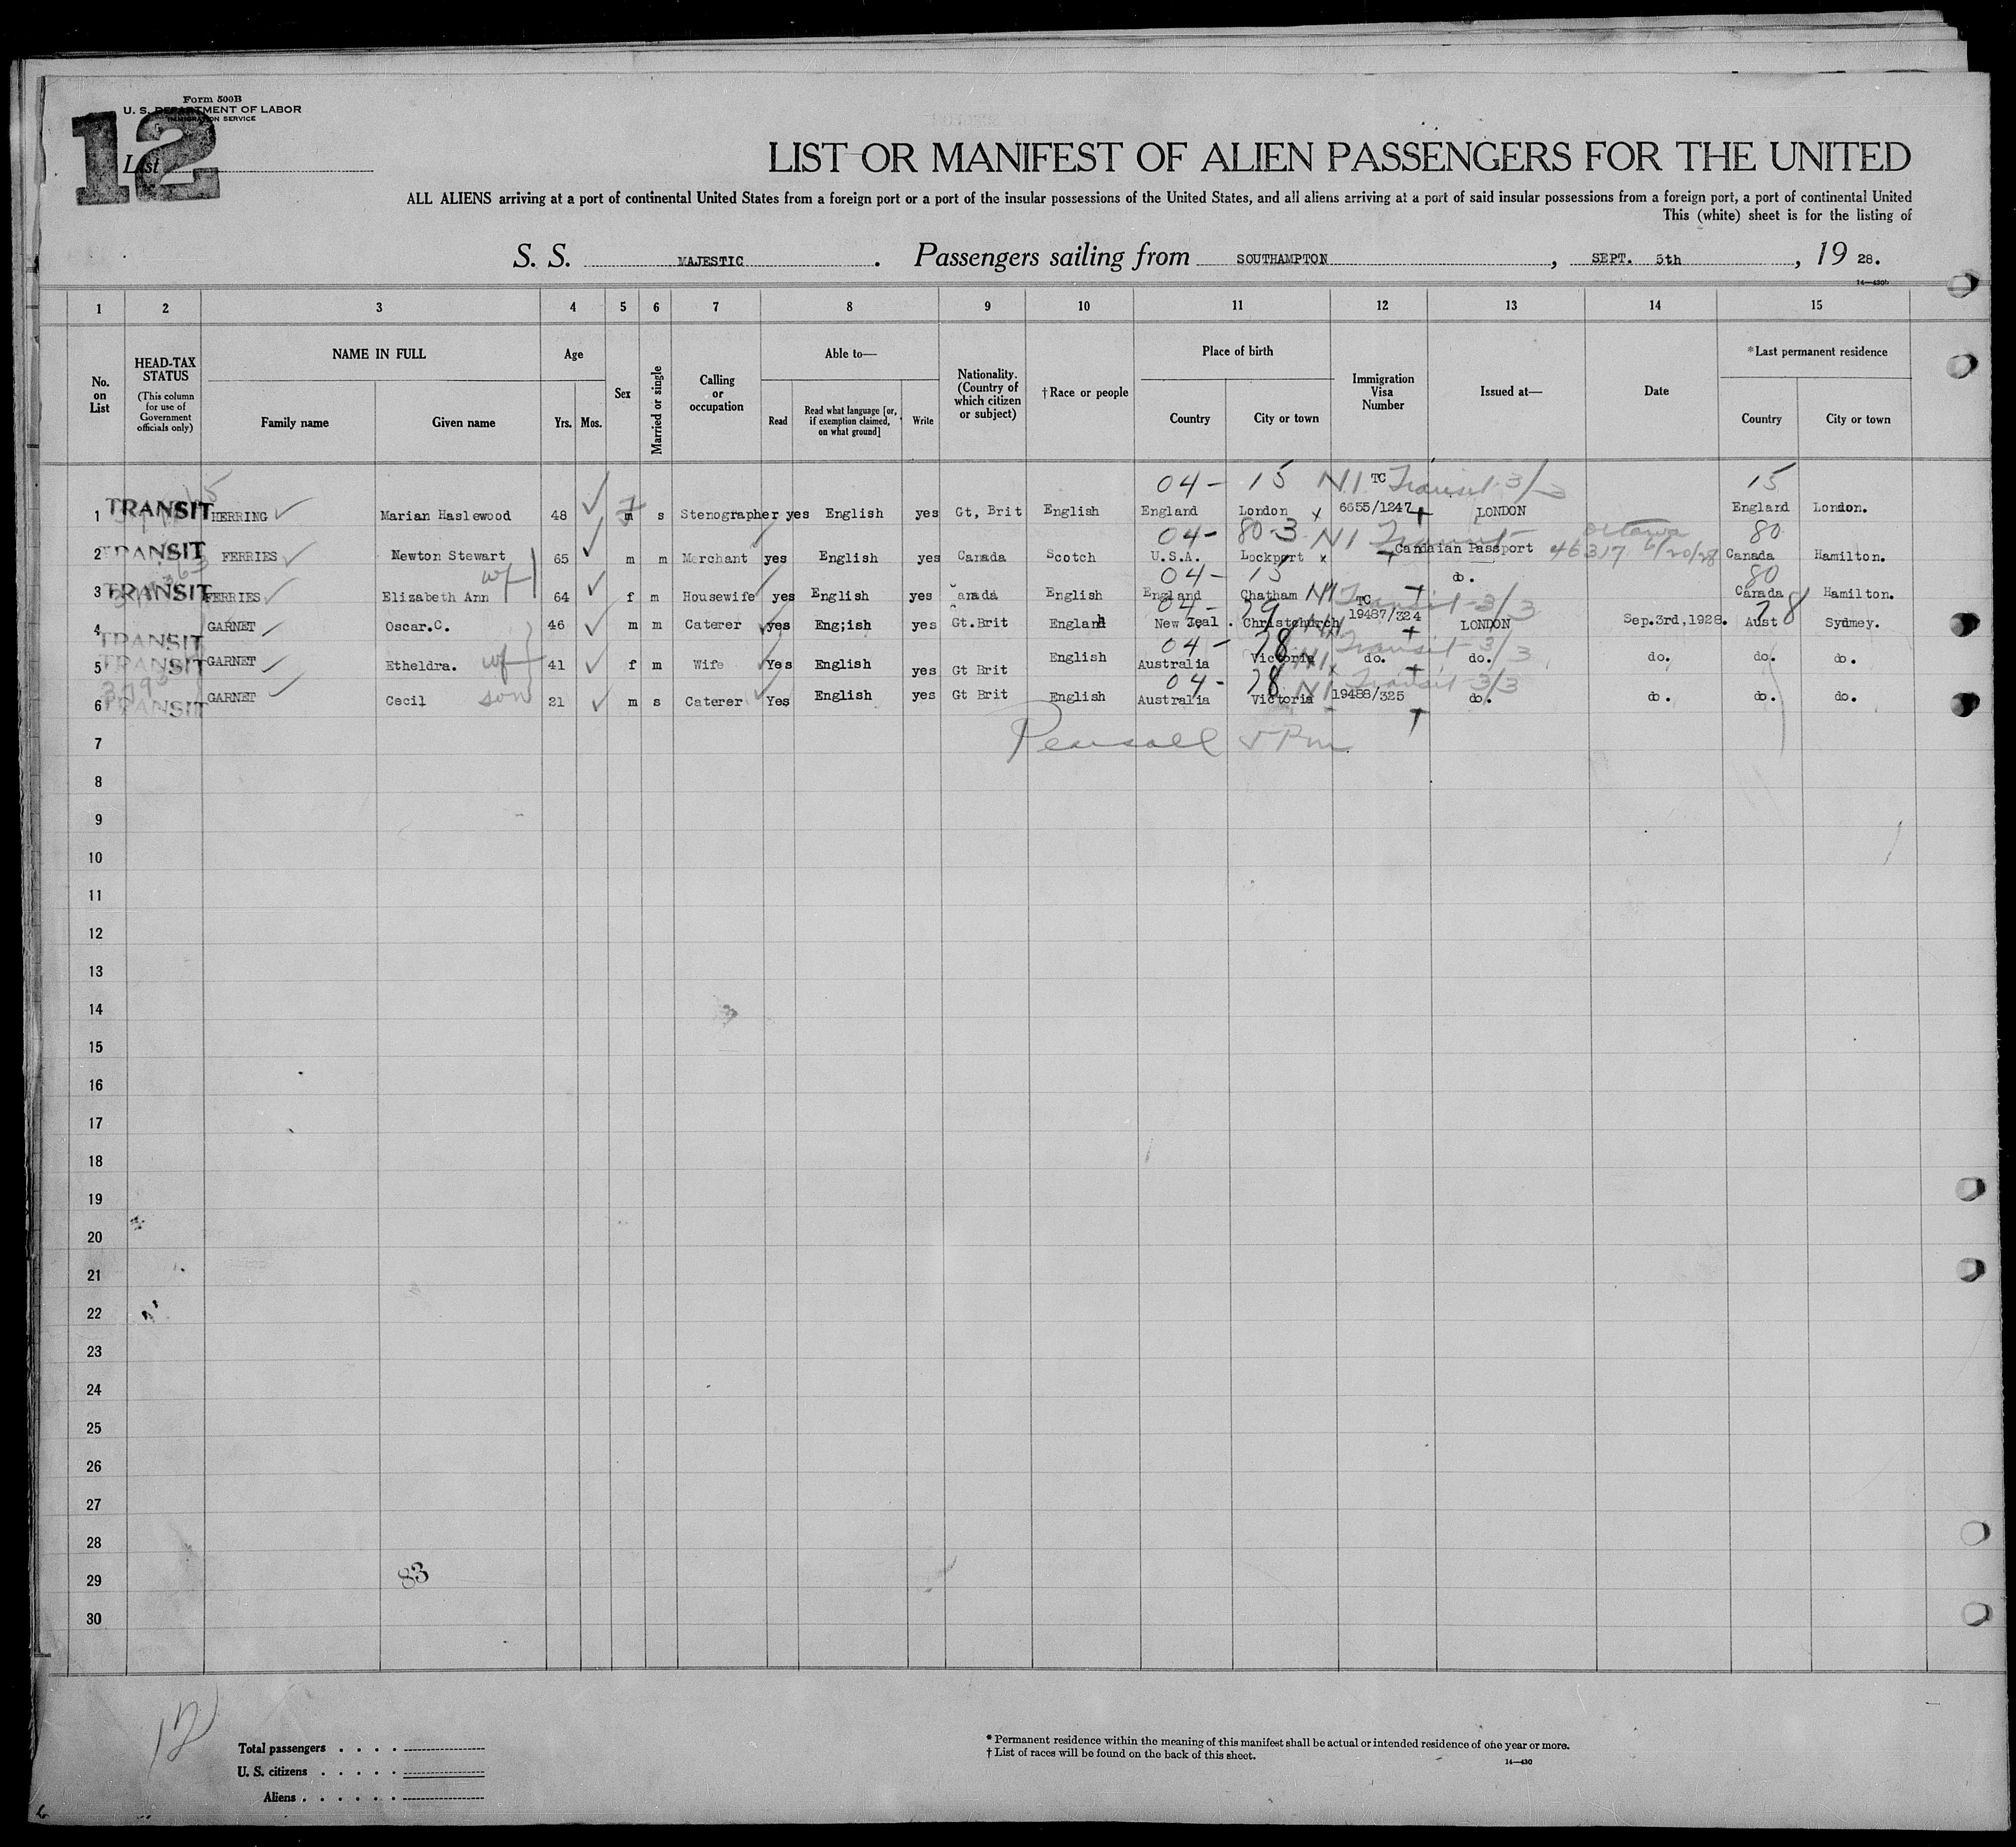 Form 500B
U. S. DEPARTMENT OF LABOR
IMMIGRATION SERVICE
12
List
LIST OR MANIFEST OF ALIEN PASSENGERS FOR THE UNITED
ALL ALIENS arriving at a port of continental United States from a foreign port or a port of the insular possessions of the United States, and all aliens arriving at a port of said insular possessions from a foreign port, a port of continental United
This (white) sheet is for the listing of
S. S. MAJESTIC. Passengers sailing from SOUTHAMPTON, SEPT. 5th, 19 28.
14—430b
1 2 3 4 5 6 7 8 9 10 11 12 13 14 15
No. on List
HEAD-TAX STATUS
(This column for use of Government officials only)
NAME IN FULL
Family name Given name
Age
Yrs. Mos.
Sex
Married or single
Calling or occupation
Able to—
Read Read what language [or, if exemption claimed, on what ground] Write
Nationality. (Country of which citizen or subject)
†Race or people
Place of birth
Country City or town
Immigration Visa Number
Issued at—
Date
*Last permanent residence
Country City or town
04- 15 N1 TC Transit 3/3 15
1 TRANSIT HERRING Marian Haslewood 48 m s Stenographer yes English yes Gt, Brit English England London x 6655/1247 LONDON England London.
04- 80-3 N1 Transit Ottawa 80
2 TRANSIT FERRIES Newton Stewart 65 m m Merchant yes English yes Canada Scotch U.S.A. Lockport x Candaian Passport 46317 6/20/28 Canada Hamilton.
wf 04- 15 do. 80
3 TRANSIT FERRIES Elizabeth Ann 64 f m Housewife yes English yes anada English England Chatham N1 Transit 3/3 Canada Hamilton.
04- 79 TC 78
4 TRANSIT GARNET Oscar.C. 46 m m Caterer yes Eng;ish yes Gt.Brit Englanh New Zeal. Christchurch 19487/324 LONDON Sep.3rd,1928. Aust Sydney.
04- 78 N1 Transit 3/3
5 TRANSIT GARNET Etheldra. wf 41 f m Wife Yes English yes Gt Brit English Australia Victoria do. do. do. do. do.
04- 78 N1 Transit 3/3
6 TRANSIT GARNET Cecil son 21 m s Caterer Yes English yes Gt Brit English Australia Victoria 19488/325 do. do. do. do.
7 Pearsall
8
9
10
11
12
13
14
15
16
17
18
19
20
21
22
23
24
25
26
27
28
29 83
30
12
Total passengers . . . .
U. S. citizens . . . . .
Aliens . . . . . .
* Permanent residence within the meaning of this manifest shall be actual or intended residence of one year or more.
† List of races will be found on the back of this sheet.
14—430